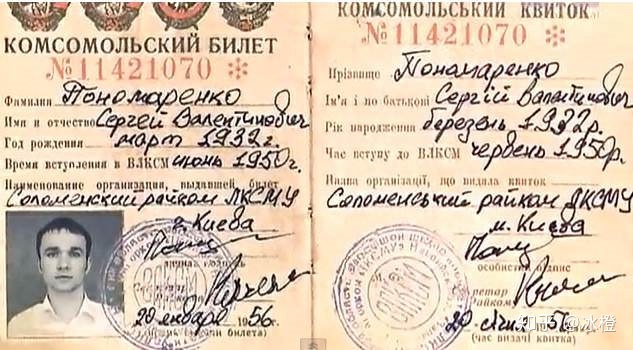 КОМСОМОЛЬСКИЙ БИЛЕТ
№11421070 *
Фамилия Пономаренко
Имя и отчество Сергей Валентинович
Год рождения март 1932г.
Время вступления в ВЛКСМ июнь 1950г.
Наименование организации, выдавшей билет
Соломенский райком ЛКСМУ
г. Киева
20 января 1956г.
КОМСОМОЛЬСЬКИЙ КВИТОК
№11421070 *
Прізвище Пономаренко
Ім'я і по батькові Сергій Валентинович
Рік народження березень 1932р.
Час вступу до ВЛКСМ червень 1950р.
Назва організації, що видала квиток
Соломенський райком ЛКСМУ
м. Києва
особистий підпис
20 1956
(час видачі квитка)
知乎 @冰橙